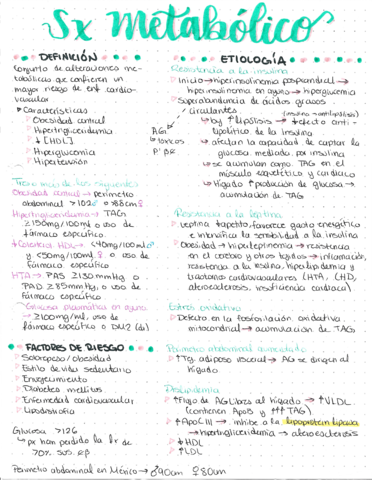 Sx Metabólico
DEFINICIÓN
Conjunto de alteraciones me-
tabólicas que confieren un
mayor riesgo de enf. cardio-
vascular
Características
Obesidad central
Hipertrigliceridemia
↓[HDL]
Hiperglucemia
Hipertensión
Tres o más de los siguientes
Obesidad central → perímetro
abdominal >102♂ o >88cm♀
Hipertrigliceridemia → TAG
≥150mg/100ml o uso de
fármaco específico
↓Colesterol HDL → <40mg/100ml♂
y <50mg/100ml ♀ o uso de
fármaco específico
HTA → PAS ≥130mmHg o
PAD ≥85mmHg, o uso de
fármaco específico
Glucosa plasmática en ayuno
→ ≥100mg/ml, uso de
fármaco específico o DM2 (dx)
FACTORES DE RIESGO
Sobrepeso/obesidad
Estilo de vida sedentario
Envejecimiento
Diabetes mellitus
Enfermedad cardiovascular
Lipodistrofia
Glucosa >126
↳ px han perdido la fx de
70% sus cél β
Perímetro abdominal en México → ♂90cm ♀80cm
ETIOLOGÍA
Resistencia a la insulina
Inicio → Hiperinsulinemia posprandial →
hiperinsulinemia en ayuno → hiperglucemia
Superabundancia de ácidos grasos
circulantes
(insulina → antilipólisis)
↳ by ↑lipólisis → ↓efecto anti-
lipolítico de la insulina
AGL
tóxicos
p' βR
→ afectan la capacidad de captar la
glucosa mediado por insulina
→ se acumulan como TAG en el
músculo esquelético y cardíaco
→ Hígado ↑producción de glucosa →
acumulación de TAG
Resistencia a la leptina
Leptina ↓apetito, favorece gasto energético
e intensifica la sensibilidad a la insulina
Obesidad → hiperleptinemia → resistencia
en el cerebro y otros tejidos → inflamación,
resistencia a la insulina, hiperlipidemia y
trastorno cardiovasculares (HTA, CHD,
aterosclerosis, insuficiencia cardiaca)
Estrés oxidativo
Defecto en la fosforilación oxidativa
mitocondrial → acumulación de TAG
Perímetro abdominal aumentado
↑Tej. adiposo visceral → AG se dirigen al
hígado
Dislipidemia
↑Flujo de AG Libres al hígado → ↑VLDL
(contienen ApoB y ↑↑↑TAG)
↑ApoC III → inhibe a la lipoprotein lipasa
→ hipertrigliceridemia → aterosclerosis
↓HDL
↑LDL